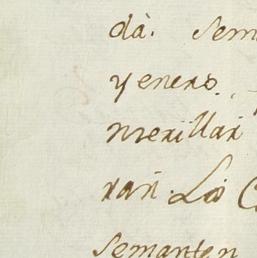 dà. Sem
y enero.
merillar
ràn. La C
semanten